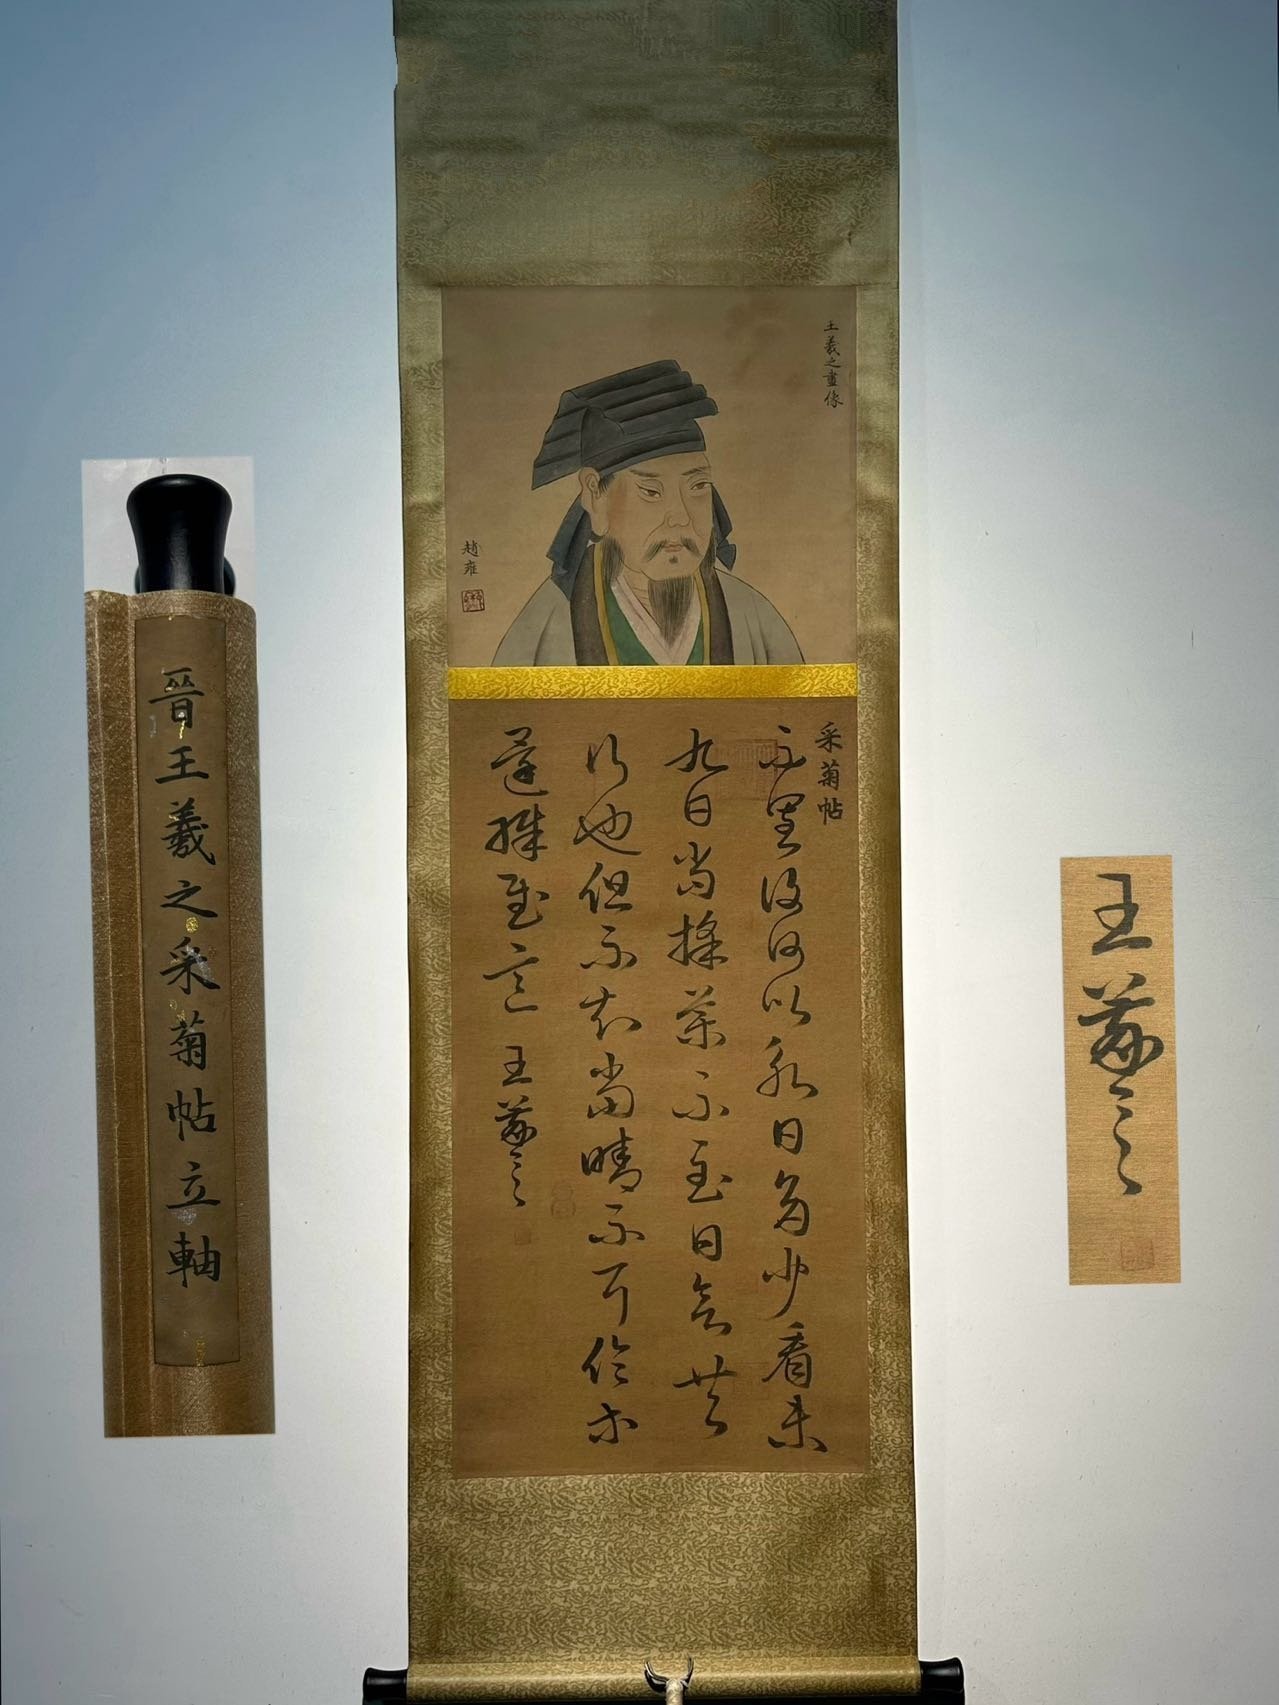 晉王羲之采菊帖立軸
王羲之畫像
趙雍
采菊帖
不審復何以永日多少看未
九日當採菊不至日欲共
行也但不知當晴不耳
王羲之
王羲之